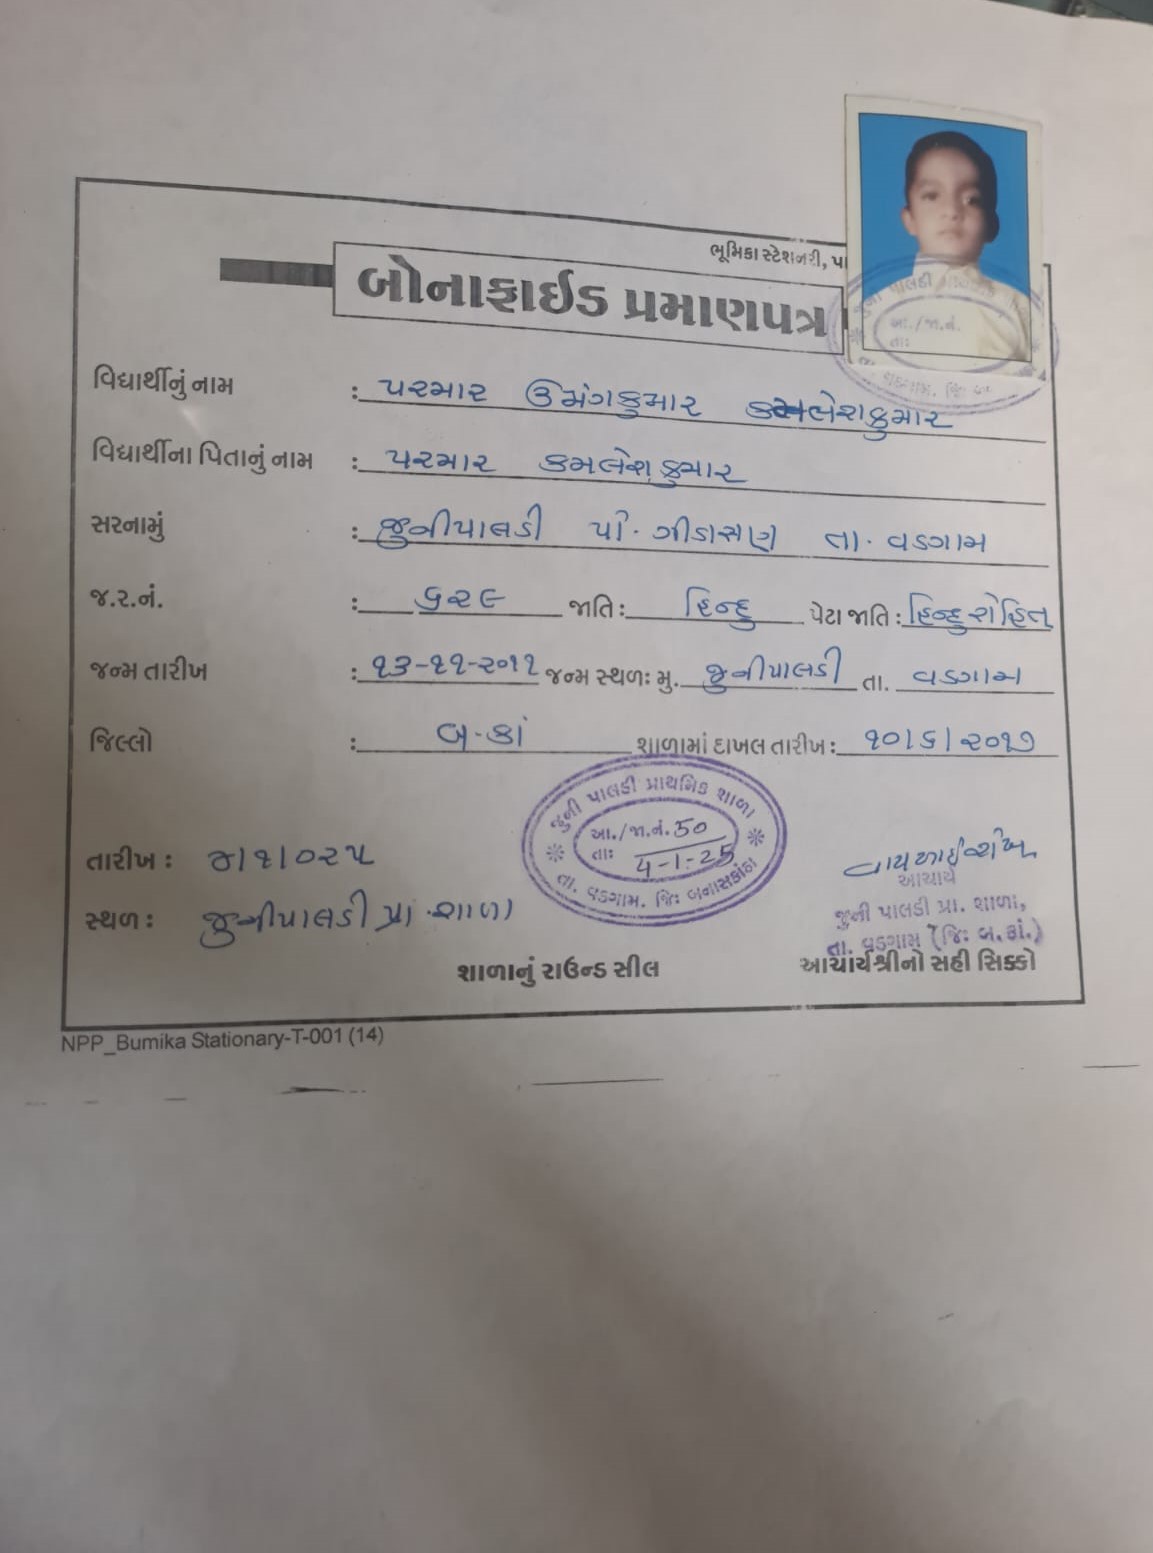 ભૂમિકા સ્ટેશનરી, પા
બોનાફાઈડ પ્રમાણપત્ર
જુની પાલડી
આ./જા.નં.
તાઃ
વડગામ. જિઃ બ
વિદ્યાર્થીનું નામ : પરમાર ઉમંગકુમાર કમલેશકુમાર
વિદ્યાર્થીના પિતાનું નામ : પરમાર કમલેશકુમાર
સરનામું : જુનીપાલડી પો. ગીડાસણ તા. વડગામ
જ.ર.નં. : ૬૨૯ જાતિ : હિન્દુ પેટા જાતિ : હિન્દુ રોહિત
જન્મ તારીખ : ૧૩-૧૧-૨૦૧૧ જન્મ સ્થળઃ મુ. જુનીપાલડી તા. વડગામ
જિલ્લો : બ.કાં શાળામાં દાખલ તારીખ : ૧૦/૬/૨૦૧૭
જુની પાલડી પ્રાથમિક શાળા
આ./જા.નં. 50
તાઃ 4-1-25
તા. વડગામ. જિઃ બનાસકાંઠા
તારીખ : ૪/૧/૦૨૫
સ્થળ : જુનીપાલડી પ્રા. શાળા
આચાર્ય
જુની પાલડી પ્રા. શાળા,
તા. વડગામ (જિઃ બ.કાં.)
શાળાનું રાઉન્ડ સીલ આચાર્યશ્રીનો સહી સિક્કો
NPP_Bumika Stationary-T-001 (14)